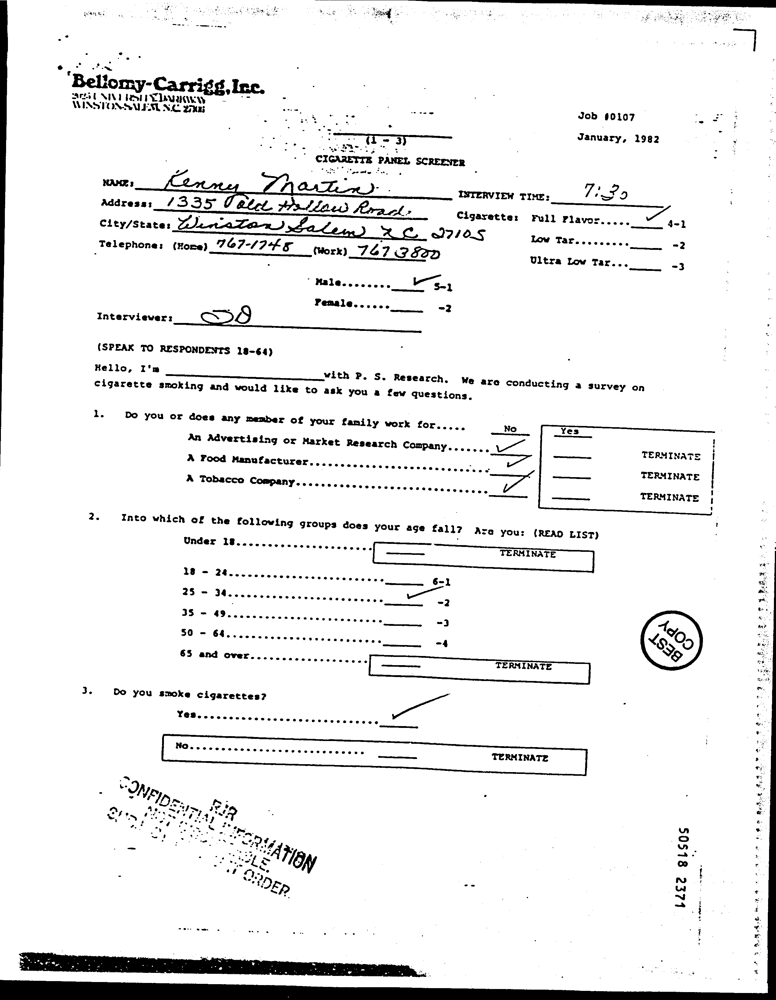 Bellomy-Carrigg, Inc.
WINSTON-SALEM, N.C.
Job #0107
January, 1982
(1 - 3)
CIGARETTE PANEL SCREENER
NAME: Kenny Martin
INTERVIEW TIME: 7:30
Address: 1335 Old Hollow Road
Cigarette: Full Flavor..... ✓ 4-1
City/State: Winston Salem N.C. 27105
Low Tar......... -2
Telephone: (Home) 767-1748 (Work) 767 3800
Ultra Low Tar... -3
Male........ ✓ 5-1
Female...... -2
Interviewer:
(SPEAK TO RESPONDENTS 18-64)
Hello, I'm ____ with P. S. Research. We are conducting a survey on
cigarette smoking and would like to ask you a few questions.
1. Do you or does any member of your family work for..... No Yes
An Advertising or Market Research Company....... ✓ TERMINATE
A Food Manufacturer.............................. ✓ TERMINATE
A Tobacco Company................................ ✓ TERMINATE
2. Into which of the following groups does your age fall? Are you: (READ LIST)
Under 18..................... TERMINATE
18 - 24........................ 6-1
25 - 34........................ ✓ -2
35 - 49........................ -3
50 - 64........................ -4
65 and over.................. TERMINATE
BEST
COPY
3. Do you smoke cigarettes?
Yes............................ ✓
No........................... TERMINATE
RJR
CONFIDENTIAL INFORMATION
ORDER.
50518 2371